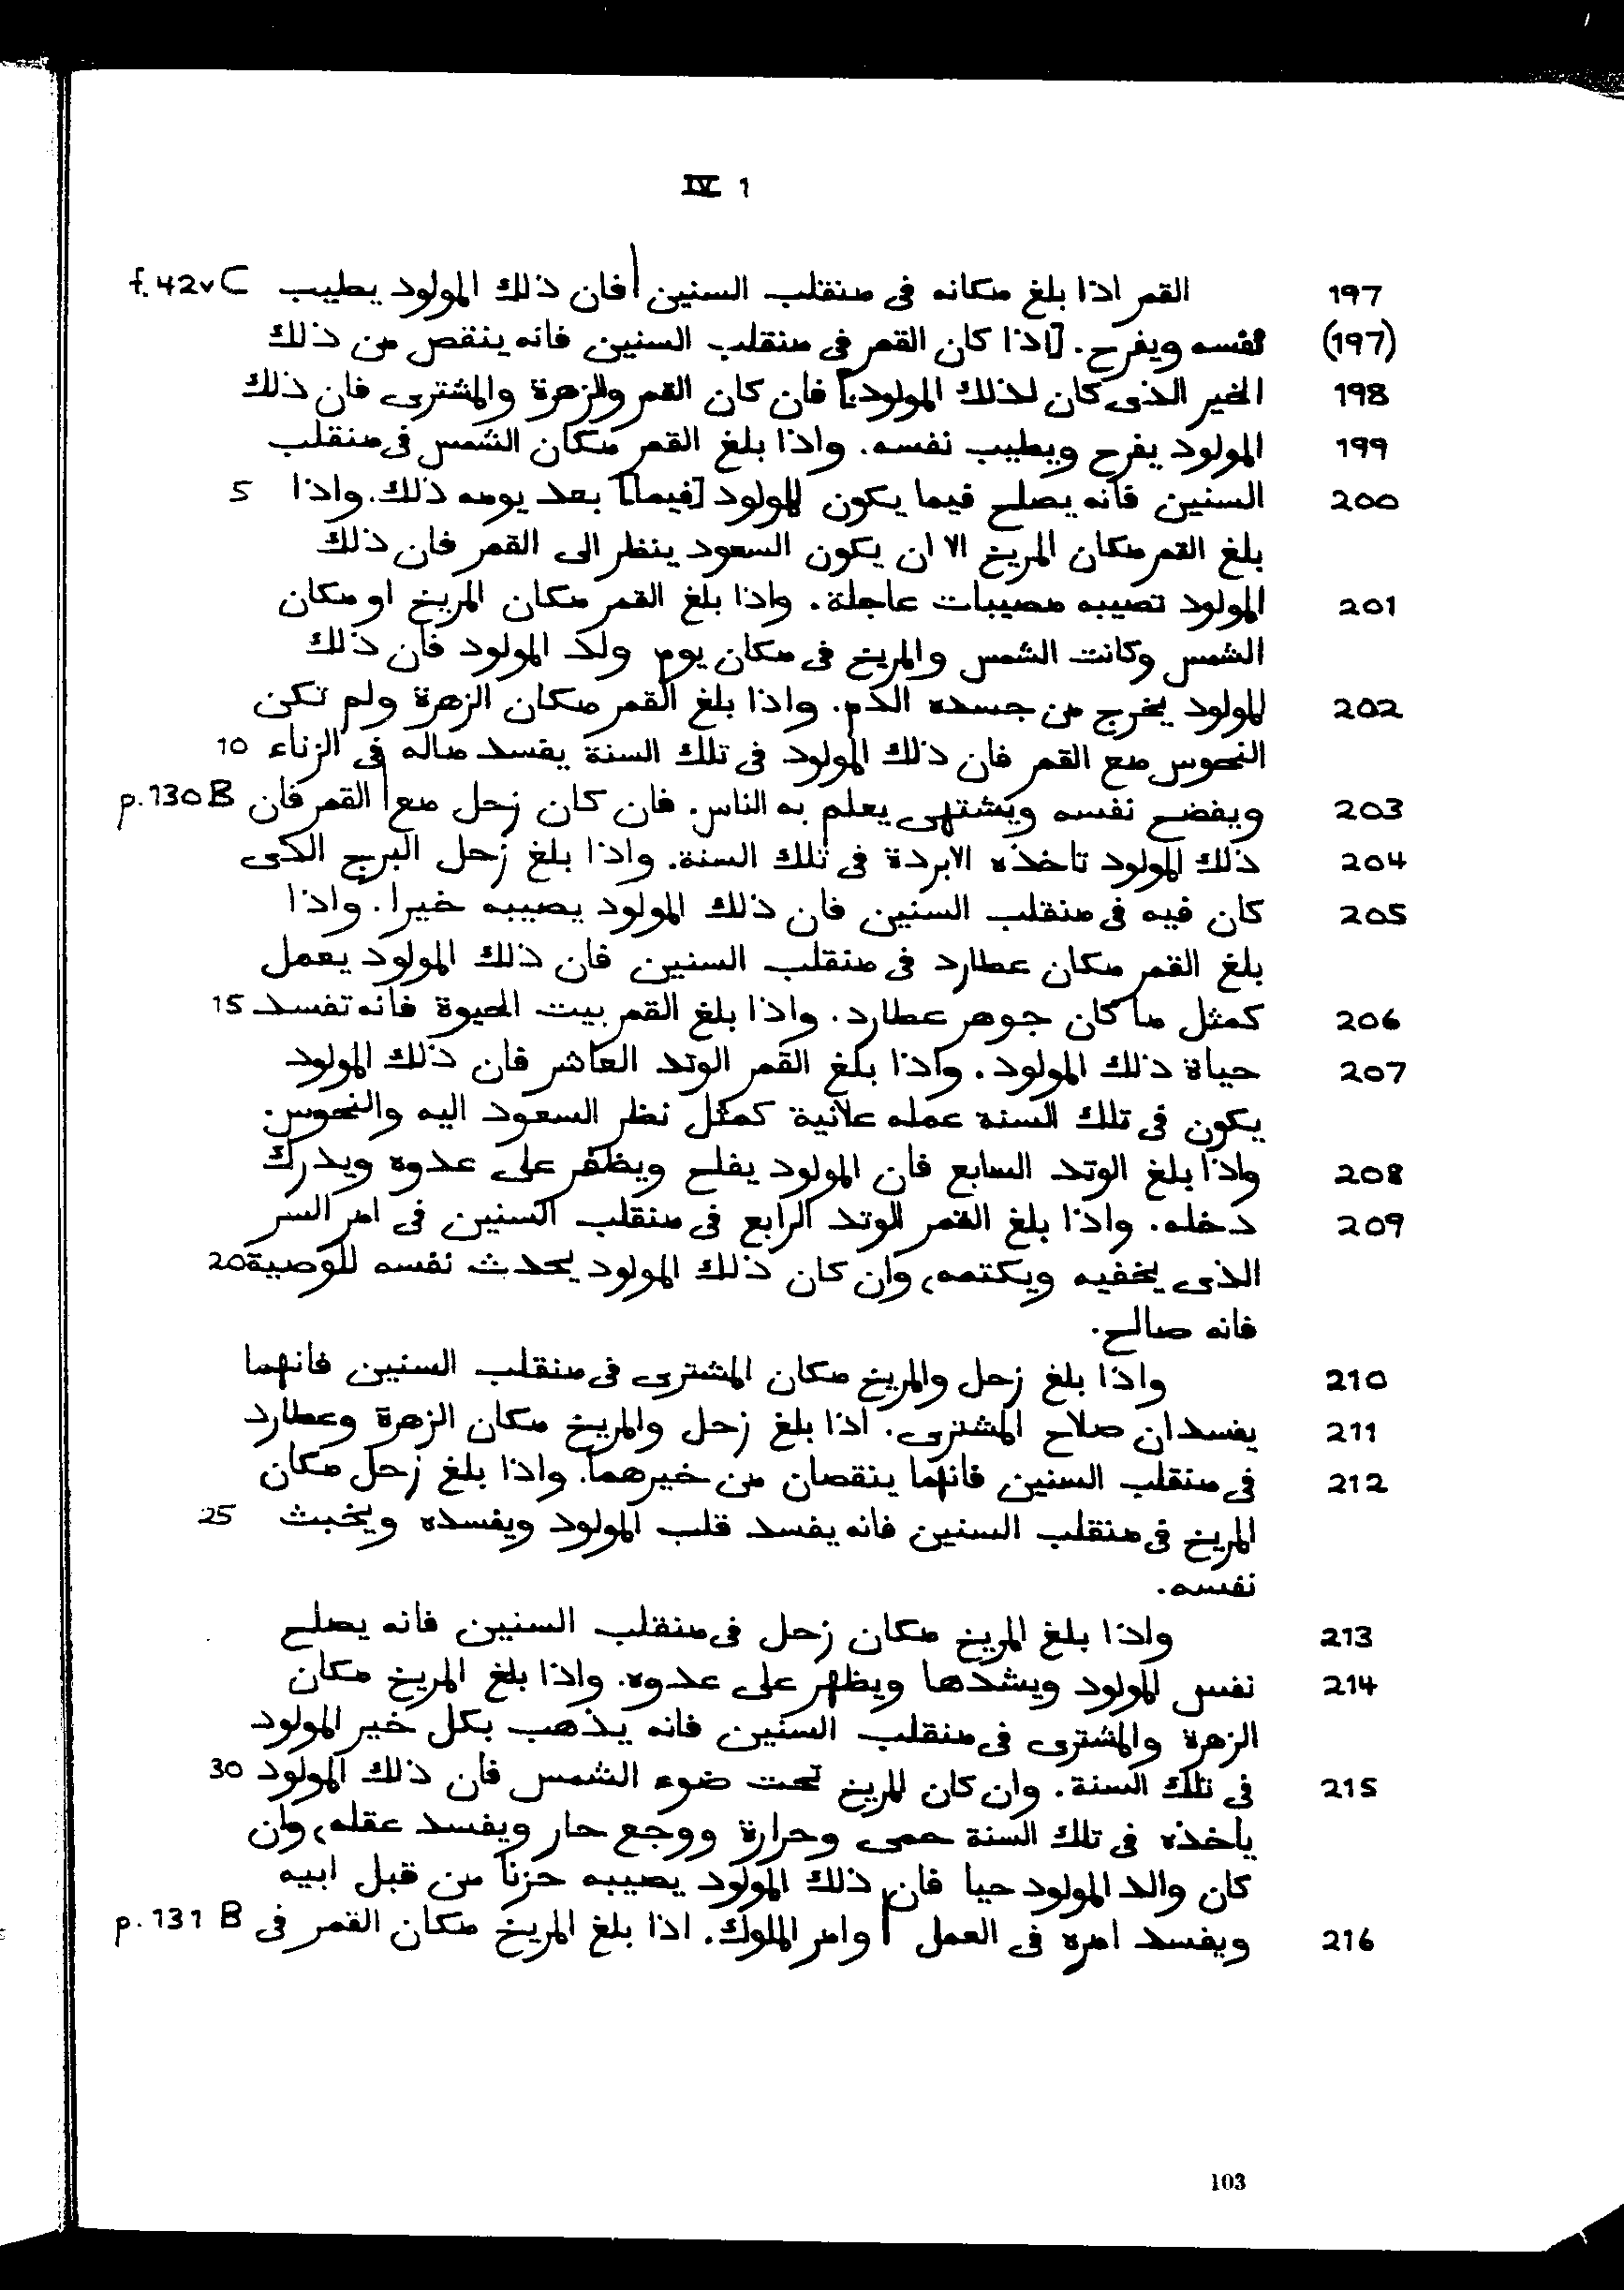 IV 1
197 القمر اذا بلغ مكانه فى منقلب السنين | فان ذلك المولود يطيب f. 42v C
(197) نفسه ويفرح. [اذا كان القمر فى منقلب السنين فانه ينقص من ذلك
198 الخير الذى كان لذلك المولود.] فان كان القمر والزهرة والمشترى فان ذلك
199 المولود يفرح ويطيب نفسه. واذا بلغ القمر مكان الشمس فى منقلب
200 السنين فانه يصلح فيما يكون للمولود [فيما] بعد يومه ذلك. واذا 5
بلغ القمر مكان المريخ الا ان يكون السعود ينظر الى القمر فان ذلك
201 المولود تصيبه مصيبات عاجلة. واذا بلغ القمر مكان المريخ او مكان
الشمس وكانت الشمس والمريخ فى مكان يوم ولد المولود فان ذلك
202 المولود يخرج من جسده الدم. واذا بلغ القمر مكان الزهرة ولم تكن
النحوس مع القمر فان ذلك المولود فى تلك السنة يفسد ماله فى الزناء 10
203 ويفضح نفسه ويشتهى يعلم به الناس. فان كان زحل مع | القمر فان p. 130 B
204 ذلك المولود تاخذه الابردة فى تلك السنة. واذا بلغ زحل البرج الذى
205 كان فيه فى منقلب السنين فان ذلك المولود يصيبه خيرا. واذا
بلغ القمر مكان عطارد فى منقلب السنين فان ذلك المولود يعمل
206 كمثل ما كان جوهر عطارد. واذا بلغ القمر بيت الحيوة فانه تفسد 15
207 حياة ذلك المولود. واذا بلغ القمر الوتد العاشر فان ذلك المولود
يكون فى تلك السنة عمله علانية كمثل نظر السعود اليه والنحوس.
208 واذا بلغ الوتد السابع فان المولود يفلح ويظفر على عدوه ويدرك
209 دخله. واذا بلغ القمر الوتد الرابع فى منقلب السنين فى امر السر
الذى يخفيه ويكتمه، وان كان ذلك المولود يحدث نفسه للوصية 20
فانه صالح.
210 واذا بلغ زحل والمريخ مكان المشترى فى منقلب السنين فانهما
211 يفسدان صلاح المشترى. اذا بلغ زحل والمريخ مكان الزهرة وعطارد
212 فى منقلب السنين فانهما ينقصان من خيرهما. واذا بلغ زحل مكان
المريخ فى منقلب السنين فانه يفسد قلب المولود ويفسده ويخبث 25
نفسه.
213 واذا بلغ المريخ مكان زحل فى منقلب السنين فانه يصلح
214 نفس المولود ويشدها ويظهر على عدوه. واذا بلغ المريخ مكان
الزهرة والمشترى فى منقلب السنين فانه يذهب بكل خير المولود
215 فى تلك السنة. وان كان المريخ تحت ضوء الشمس فان ذلك المولود 30
ياخذه فى تلك السنة حمى وحرارة ووجع حار ويفسد عقله، وان
كان والد المولود حيا فان ذلك المولود يصيبه حزنا من قبل ابيه
216 ويفسد امره فى العمل | وامر الملوك. اذا بلغ المريخ مكان القمر فى p. 131 B
103